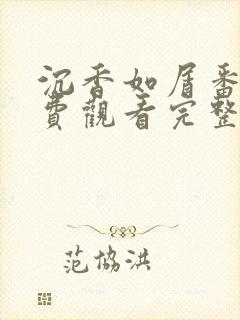 沉香如屑番
費觀看完整
范協洪